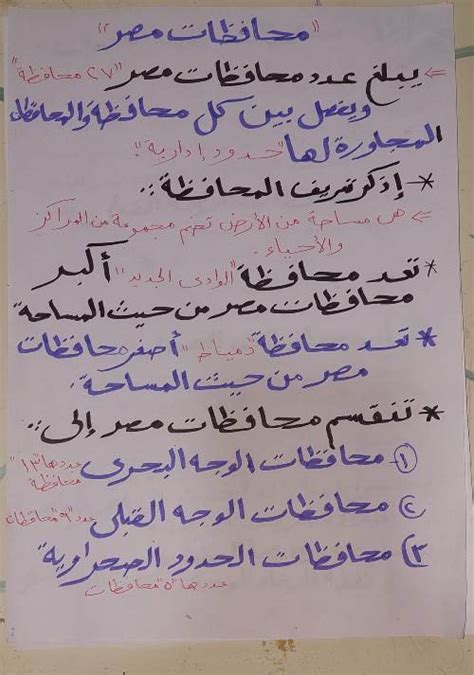 "محافظات مصر"
⇐ يبلغ عدد محافظات مصر "٢٧ محافظة"
ويفصل بين كل محافظة والمحافظة
المجاورة لها "حدود إدارية".
* إذكر تعريف المحافظة :.
⇐ هى مساحة من الأرض تضم مجموعة من المراكز
والأحياء.
* تعد محافظة "الوادى الجديد" أكبر
محافظات مصر من حيث المساحة
* تعد محافظة "دمياط" أصغر محافظات
مصر من حيث المساحة.
* تنقسم محافظات مصر إلى :.
١) محافظات الوجه البحرى عددها "١٣"
محافظة
٢) محافظات الوجه القبلى عدد "٩" محافظات
٣) محافظات الحدود الصحراوية
عددها "٥" محافظات